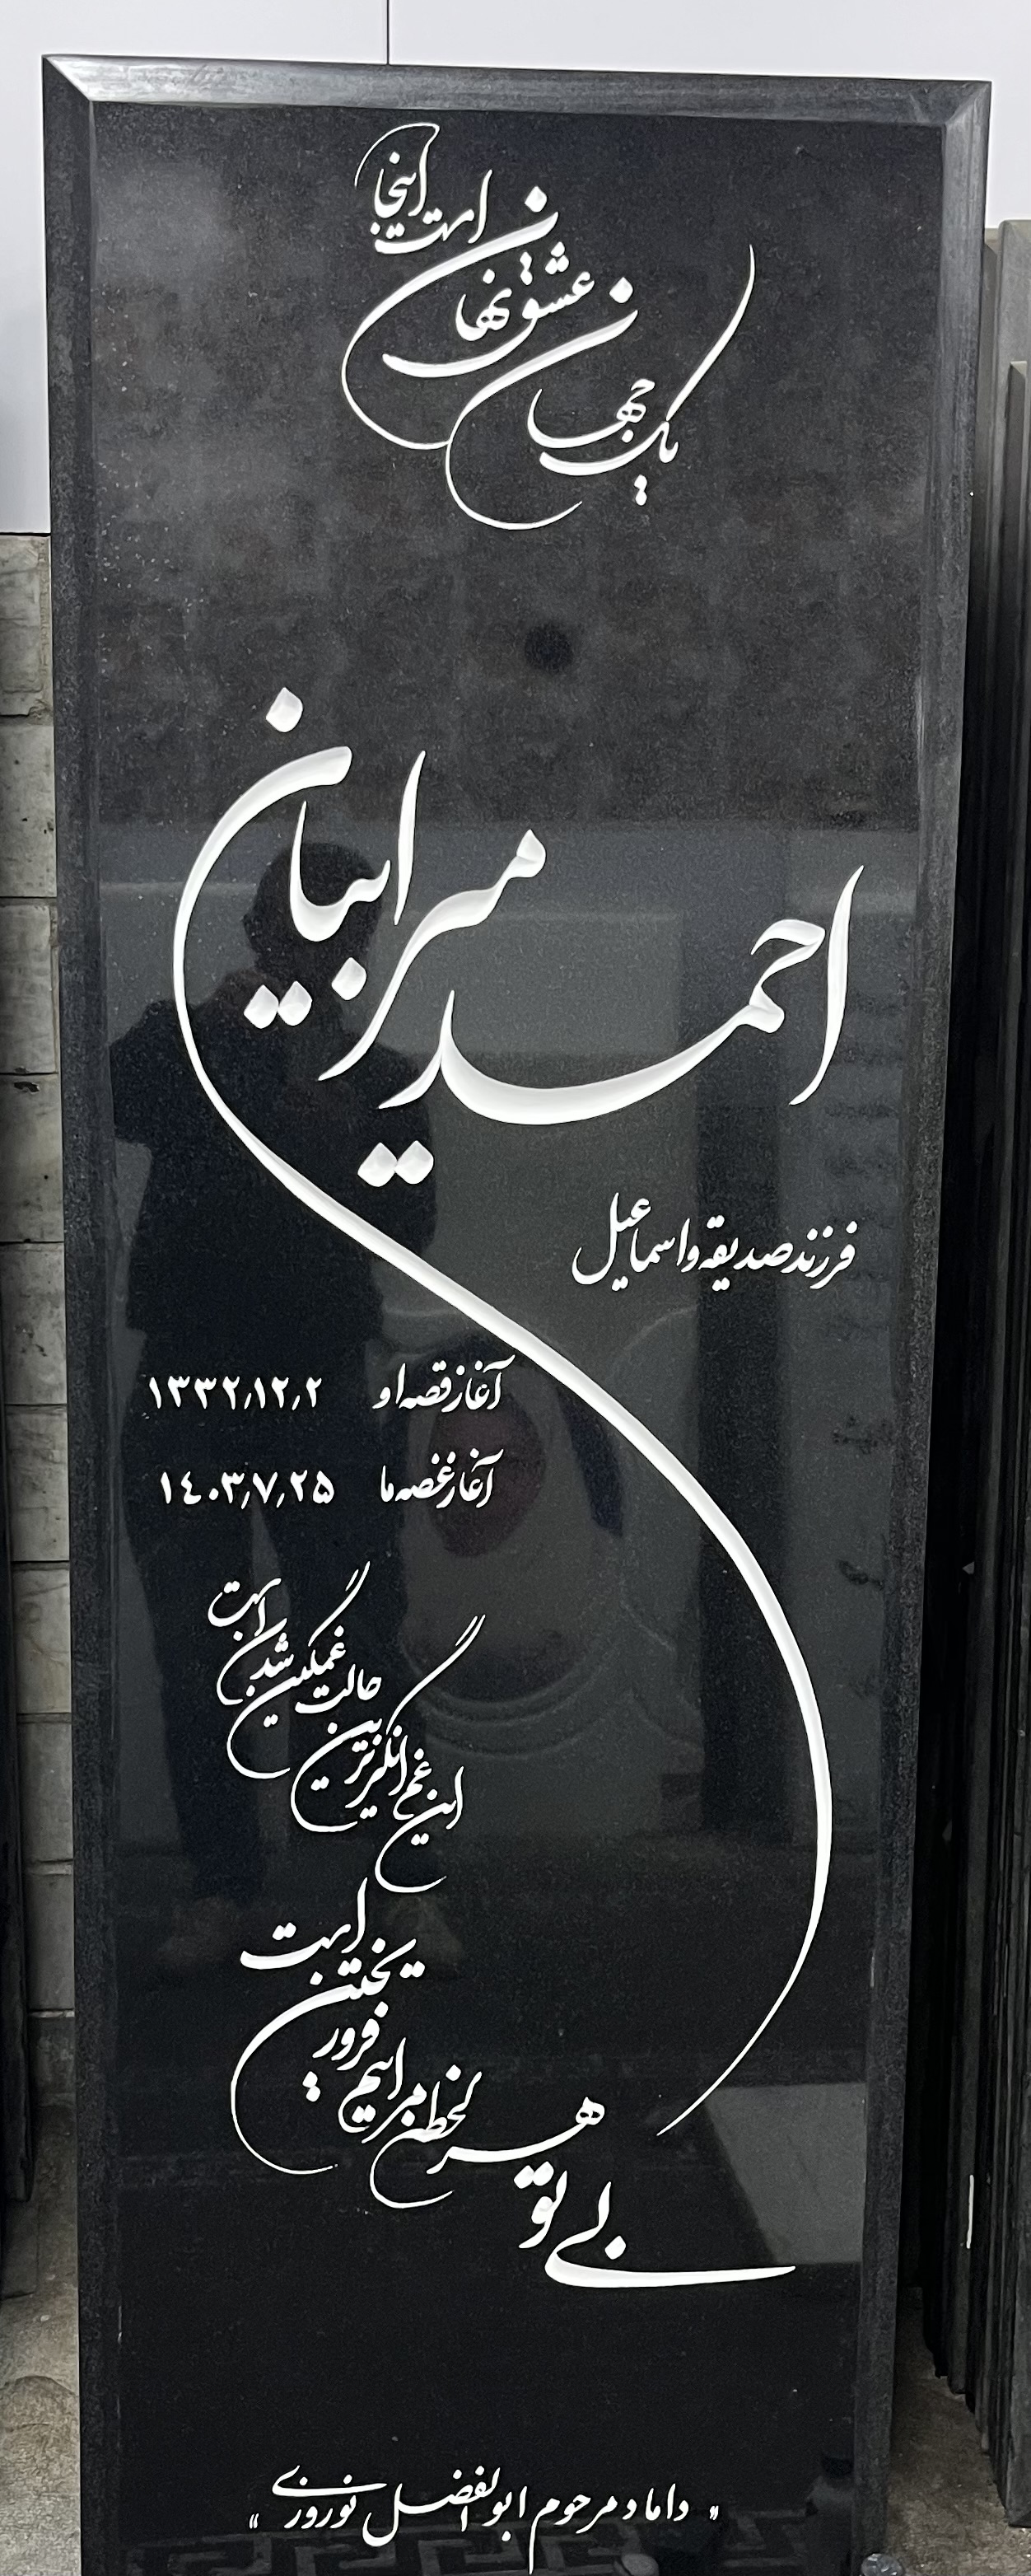 یک جهان عشق نهان است اینجا
احمد میرابیان
فرزند صدیقه و اسماعیل
آغاز قصه او ۱۳۳۲/۱۲/۲
آغاز غصه ما ۱٤۰۳/۷/۲۵
این غم انگیزترین حالت غمگین شدن است
بی تو هر لحظه مرا بیم فرو ریختن است
" داماد مرحوم ابوالفضل نوروزی "